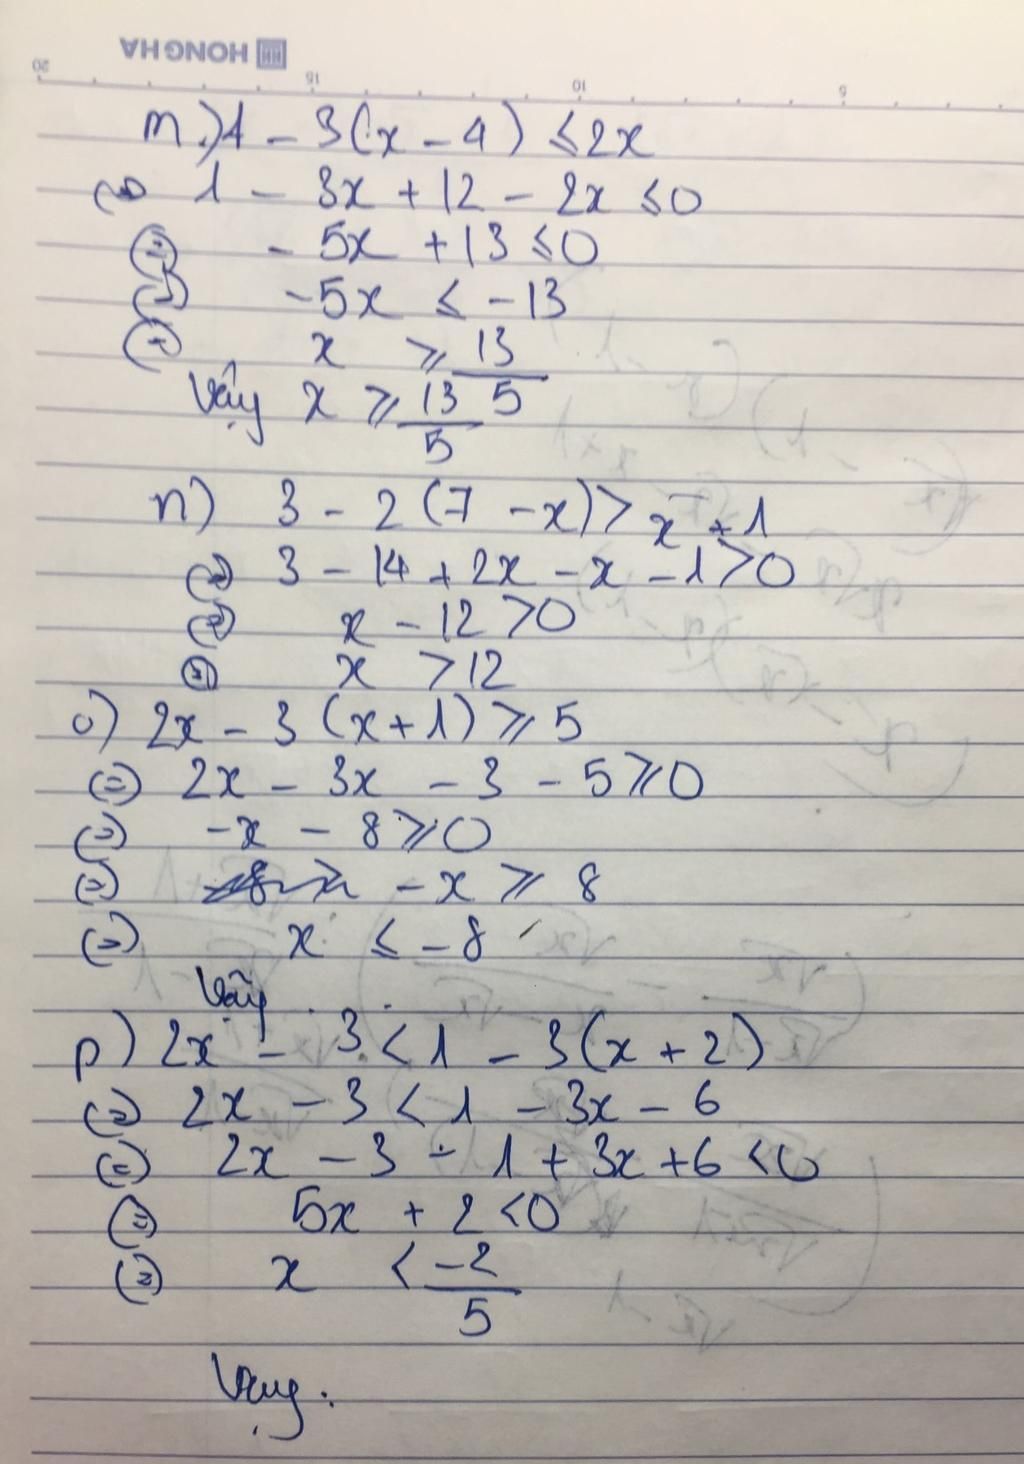 HONG HA
20 15 10 5
m.) 1 - 3(x - 4) ≤ 2x
⇔ 1 - 3x + 12 - 2x ≤ 0
⇔ - 5x + 13 ≤ 0
⇔ -5x ≤ -13
⇔ x ≥ 13/5
Vậy x ≥ 13/5
n) 3 - 2(7 - x) > x + 1
⇔ 3 - 14 + 2x - x - 1 > 0
⇔ x - 12 > 0
⇔ x > 12
o) 2x - 3(x + 1) ≥ 5
⇔ 2x - 3x - 3 - 5 ≥ 0
⇔ -x - 8 ≥ 0
⇔ -x ≥ 8
⇔ x ≤ -8
Vậy
p) 2x - 3 < 1 - 3(x + 2)
⇔ 2x - 3 < 1 - 3x - 6
⇔ 2x - 3 - 1 + 3x + 6 < 0
⇔ 5x + 2 < 0
⇔ x < -2/5
Vậy.